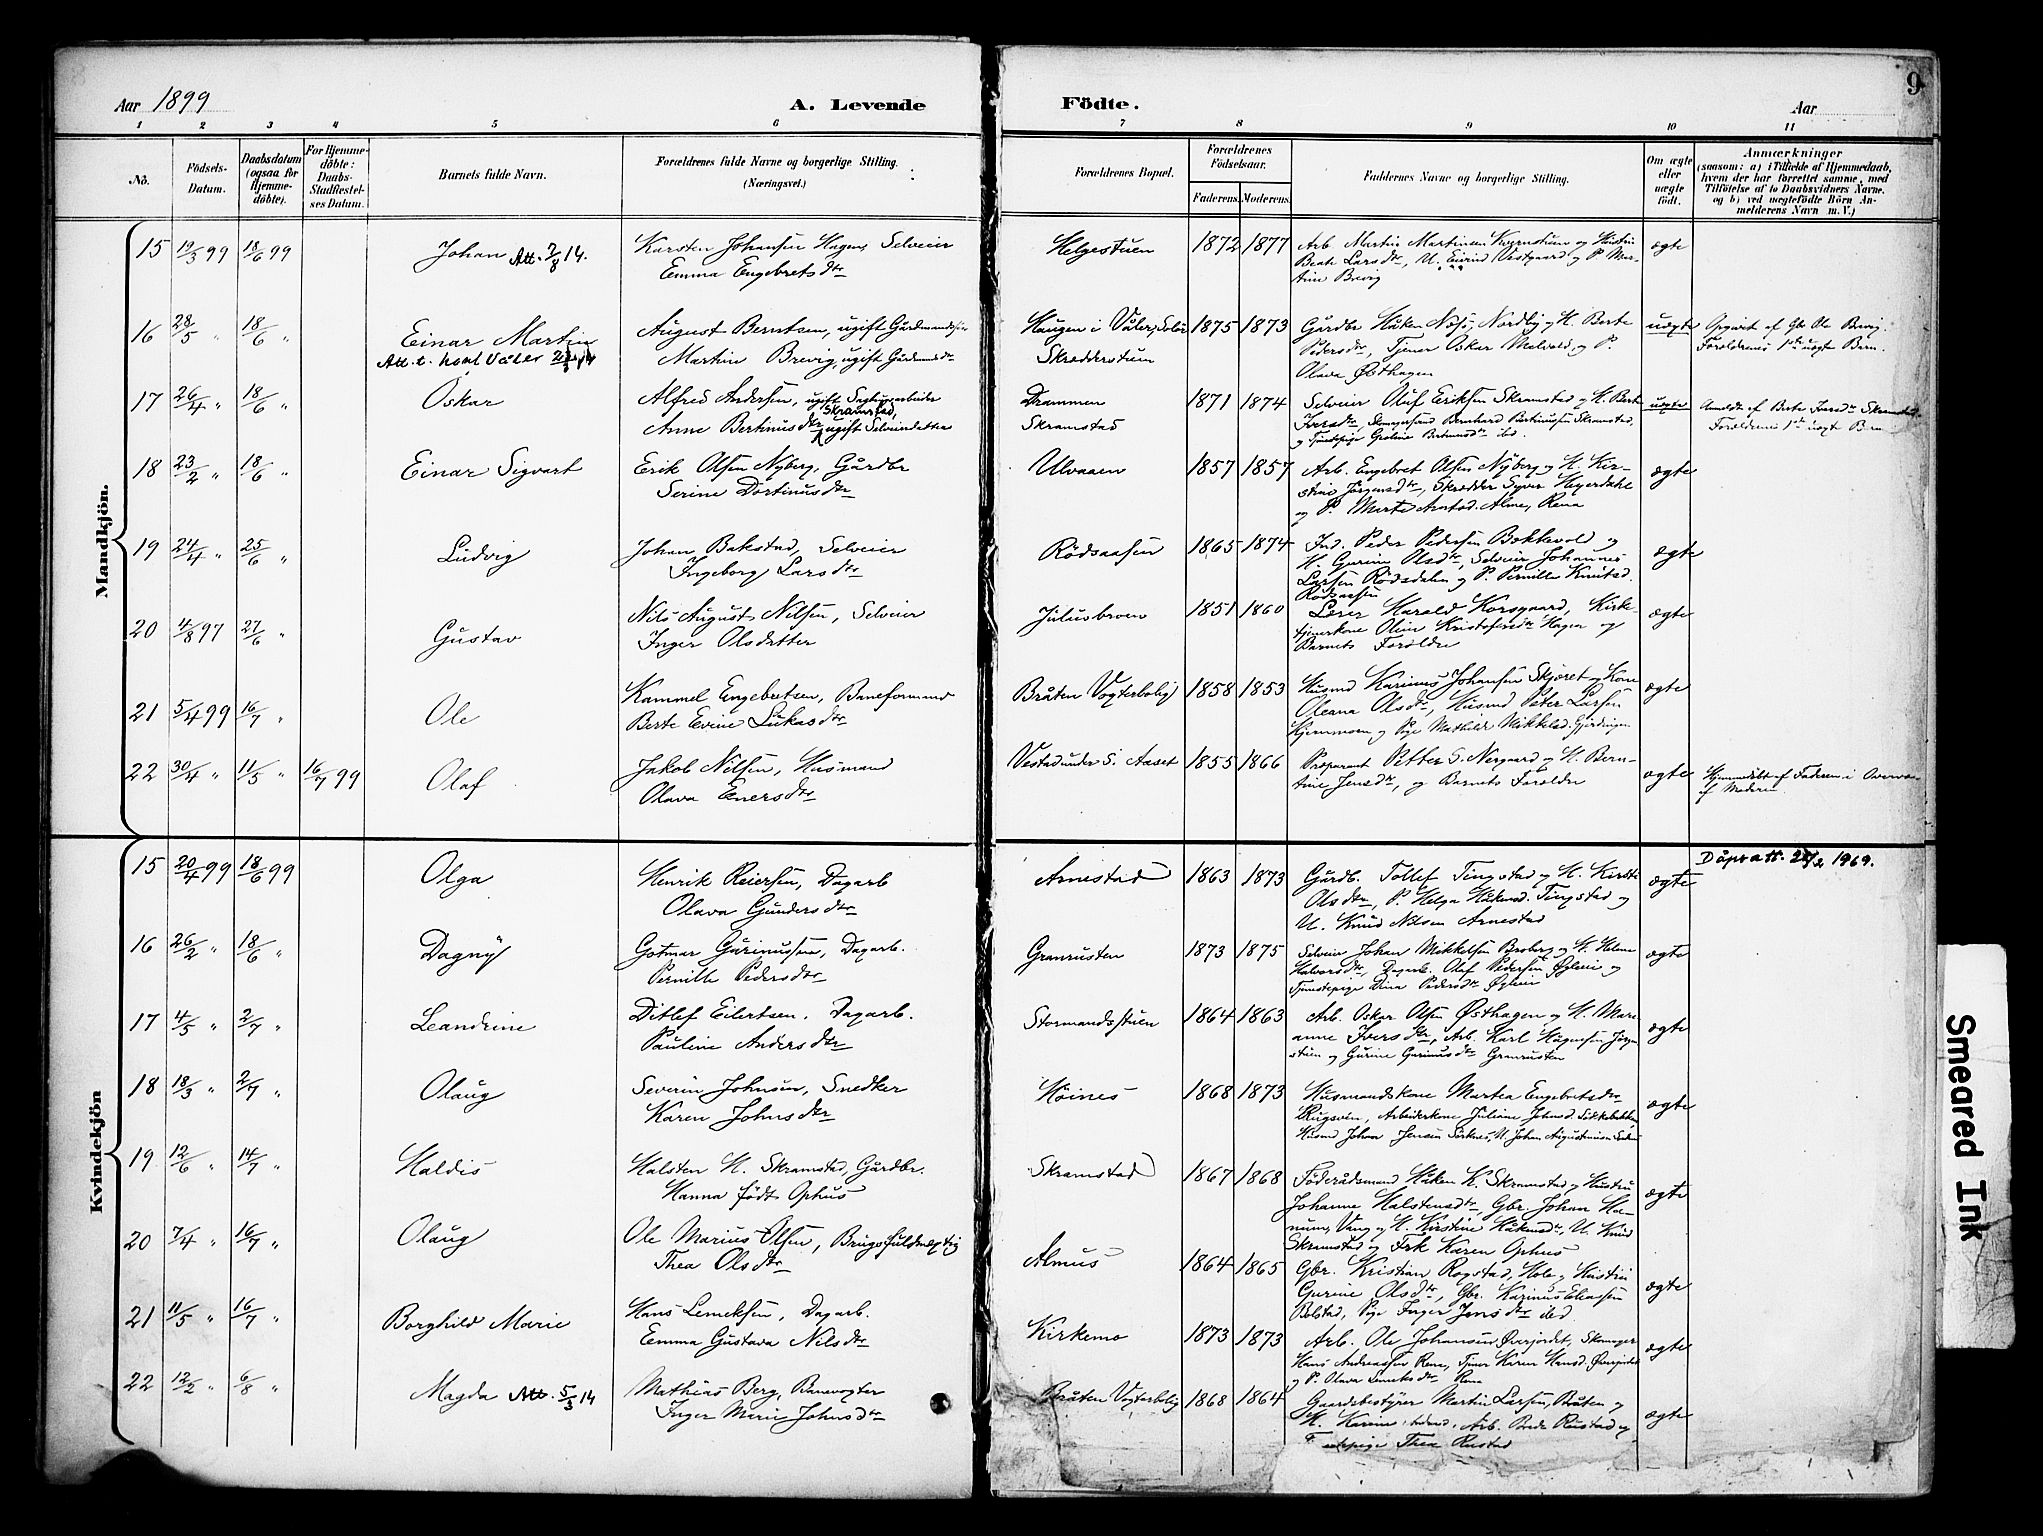 9
Aar 1899
A. Levende
Födte.
Aar
1 2 3 4 5 6 7 8 9 10 11
No.
Födsels-
Datum.
Daabsdatum
(ogsaa for
Hjemme-
döbte).
For Hjemme-
döbte:
Daabs-
Stadfæstel-
ses Datum.
Barnets fulde Navn.
Forældrenes fulde Navne og borgerlige Stilling.
(Næringsvei.)
Forældrenes Bopæl.
Forældrenes
Födselsaar.
Faderens. Moderens.
Faddernes Navne og borgerlige Stilling.
Om ægte
eller
uægte
födt.
Anmærkninger
(saasom: a) i Tilfælde af Hjemmedaab,
hvem der har forrettet samme, med
Tilföielse af to Daabsvidners Navne.
og b) ved uægtefödte Börn An-
melderens Navn m. V.)
Mandkjön.
15 19/3 99 18/6 99 Johan Att. 7/8 14. Karsten Johansen Hagen, Selveier
Emma Engebretsdtr
Helgestuen 1872 1877 Arb. Martin Martinsen Kvernstuen og Hustru
Beate Larsdtr, U. Eivind Vestgaard og P. Mar-
tine Brevig
ægte
16 28/5 " 18/6 " Einar Martin
August Berntsen, ugift Gårdmandssøn
Martine Brevig, ugift Gårdmdsdtr
Haugen i Våler, Solør
Skrædderstuen
1875 1873 Gårdbr Håken Næss, Nordby og H. Berte
Pedersdtr, Tjener Oskar Melvold, og P.
Olava Østhagen
uægte Opgivet af Gbr Ole Brevig.
Forældrenes 1ste uægte Barn.
17 26/4 " 18/6 " Oskar
Alfred Andersen, ugift Sagbrugsarbeider
Anne Bertinusdtr Skramstad, ugift Selveierdatter
Drammen
Skramstad
1871 1874 Selveier Oluf Eriksen Skramstad og H. Berte
Iversdtr, Bernhard Bertinussen Skramstad,
og Tjenestepige Groline Bertinusdtr ibid.
uægte Anmeldt af Berte Iversdtr Skramstad.
Forældrenes 1ste uægte Barn
18 23/2 " 18/6 " Einar Sigvart
Erik Olsen Nyberg, Gårdbr
Serine Dortinusdtr
Ulvaaen 1857 1857 Arb. Engebret Olsen Nyberg og H. Kir-
stine Jørgensdtr, Skrædder Syver Heyerdahl
og P. Marte Arnstad. Alme, Rena
ægte
19 24/4 " 25/6 " Ludvig
Johan Bakstad, Selveier
Ingeborg Larsdtr
Rödsaasen 1865 1874 Ind. Peder Pedersen Bokkvold og
H. Gurine Olsdtr, Selveier Johannes
Larsen Rödsdalen og P. Pernille Knutsd.
Rödsaasen
ægte
20 4/8 97 27/6 " Gustav
Nils August Nilsen, Selveier
Inger Olsdatter
Juliusbroen 1851 1860 Lærer Harald Korsgaard, Kirke-
tjenerkone Oline Kristofersdtr Hagen og
Barnets Forældre
ægte
21 5/4 99 16/7 " Ole
Kammel Engebretsen, Baneformand
Berte Evine Lukasdtr
Bråten Vogterbolig 1858 1853 Husmd Karinus Johansen Skjøret og Kone
Oleana Olsdtr, Husmd Peter Larsen
Kjernmoen og Pige Mathilde Mikkelsd. Gjerdingen
ægte
22 30/4 " 11/5 " 16/7 99 Olaf
Jakob Nilsen, Husmand
Olava Enersdtr
Vestad under S. Aaset 1855 1866 Præparant Petter S. Nergaard og H. Bern-
tine Jensdtr, og Barnets Forældre
ægte Hjemmedøbt af Faderen i Overvær
af Moderen.
Kvindekjön
Dåpsatt. 2/2 1969.
15 20/4 99 18/6 99 Olga
Henrik Reiersen, Dagarb
Olava Gundersdtr
Arnestad 1863 1873 Gårdb. Tollef Tingstad og H. Kirsti
Olsdtr, P. Helga Håkensd. Tingstad og
U. Knud Nilsen Arnestad
ægte
16 26/2 " 18/6 " Dagny
Gotmar Gurinussen, Dagarb.
Pernille Pedersdtr
Granrusten 1873 1875 Selveier Johan Mikkelsen Broberg og H. Helene
Halvorsdtr, Dagarb. Olaf Pedersen Øgleie og
Tjenestepige Dina Pedersdtr Øgleie
ægte
17 4/5 " 2/7 " Leandrine
Ditlef Eilertsen, Dagarb.
Pauline Andersdtr
Stormandsstuen 1864 1863 Arb. Oskar Olsen Østhagen og H. Mari-
anne Iversdtr, Arb. Karl Hågensen Jörgen-
stuen og Gurine Gurinusdtr Granrusten
ægte
18 18/3 " 2/7 " Olaug
Severin Johnsen, Snedker
Karen Johnsdtr
Höines 1868 1873 Husmandskone Martea Engebretsdtr
Rugsveen, Arbeiderkone Juliane Johnsd. Sökkebakken,
Husmd Johan Jensen Sörknes, U. Johan Augustinusen
ægte
19 12/6 " 14/7 " Haldis
Halsten H. Skramstad, Gårdbr.
Hanna födt Ophus
Skramstad 1867 1868 Föderådsmand Håken K. Skramstad og Hustru
Johanne Halstensdtr, Gbr. Johan Ha-
num, Vang og H. Kirstine Håkensdtr, U. Knud
Skramstad og Frk Karen Ophus
ægte
20 7/4 " 16/7 " Olaug
Ole Marius Olsen, Brugsfuldmægtig
Thea Olsdtr
Almus 1864 1865 Gbr. Kristian Rogstad, Hole og Hustru
Gurine Olsdtr, Gbr. Karinus Eliassen
Bolstad, Pige Inger Jensdtr ibid
ægte
21 11/5 " 16/7 " Borghild Marie
Hans Lemeksen, Dagarb.
Emma Gustava Nilsdtr
Kirkemo 1873 1873 Arb. Ole Johansen Øverjordet, Skomager
Hans Andreassen Rena, Tjener Karen Hansd. Øverjordet
og P. Olava Lemeksdtr Rena
ægte
22 12/2 " 6/8 " Magda Att. 5/3 14
Mathias Berg, Banevogter
Inger Marie Johnsdtr
Bråten Vogterbolig 1868 1864 Gaardsbestyrer Martin Larsen, Bråten og
H. Karine ibid., Arb. Peder Rustad og
Thea Rustad
ægte
Smeared Ink